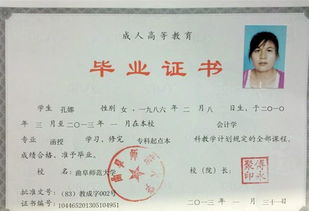 成人高等教育
毕业证书
学生 孔娜 性别 女,一九八六 年 二 月 八 日生,于二〇一〇
年 三 月至二〇一三 年 一 月在本校 会计学
专业 函授 学习,修完 专科起点本 科教学计划规定的全部课程,
成绩合格,准予毕业。
校 名:曲阜师范大学 校(院)长:
批准文号:(83)教成字002号
证书编号:104465201305104951 二〇一三 年 一 月 三十一 日